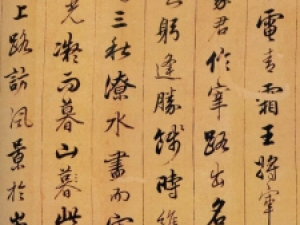 電青霜王將軍
家君作宰路出名
躬逢勝餞時維
三秋潦水盡而寒
光凝而暮山紫
上路訪風景於崇